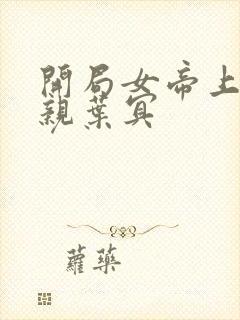 開局女帝上
親葉冥
蘿藥